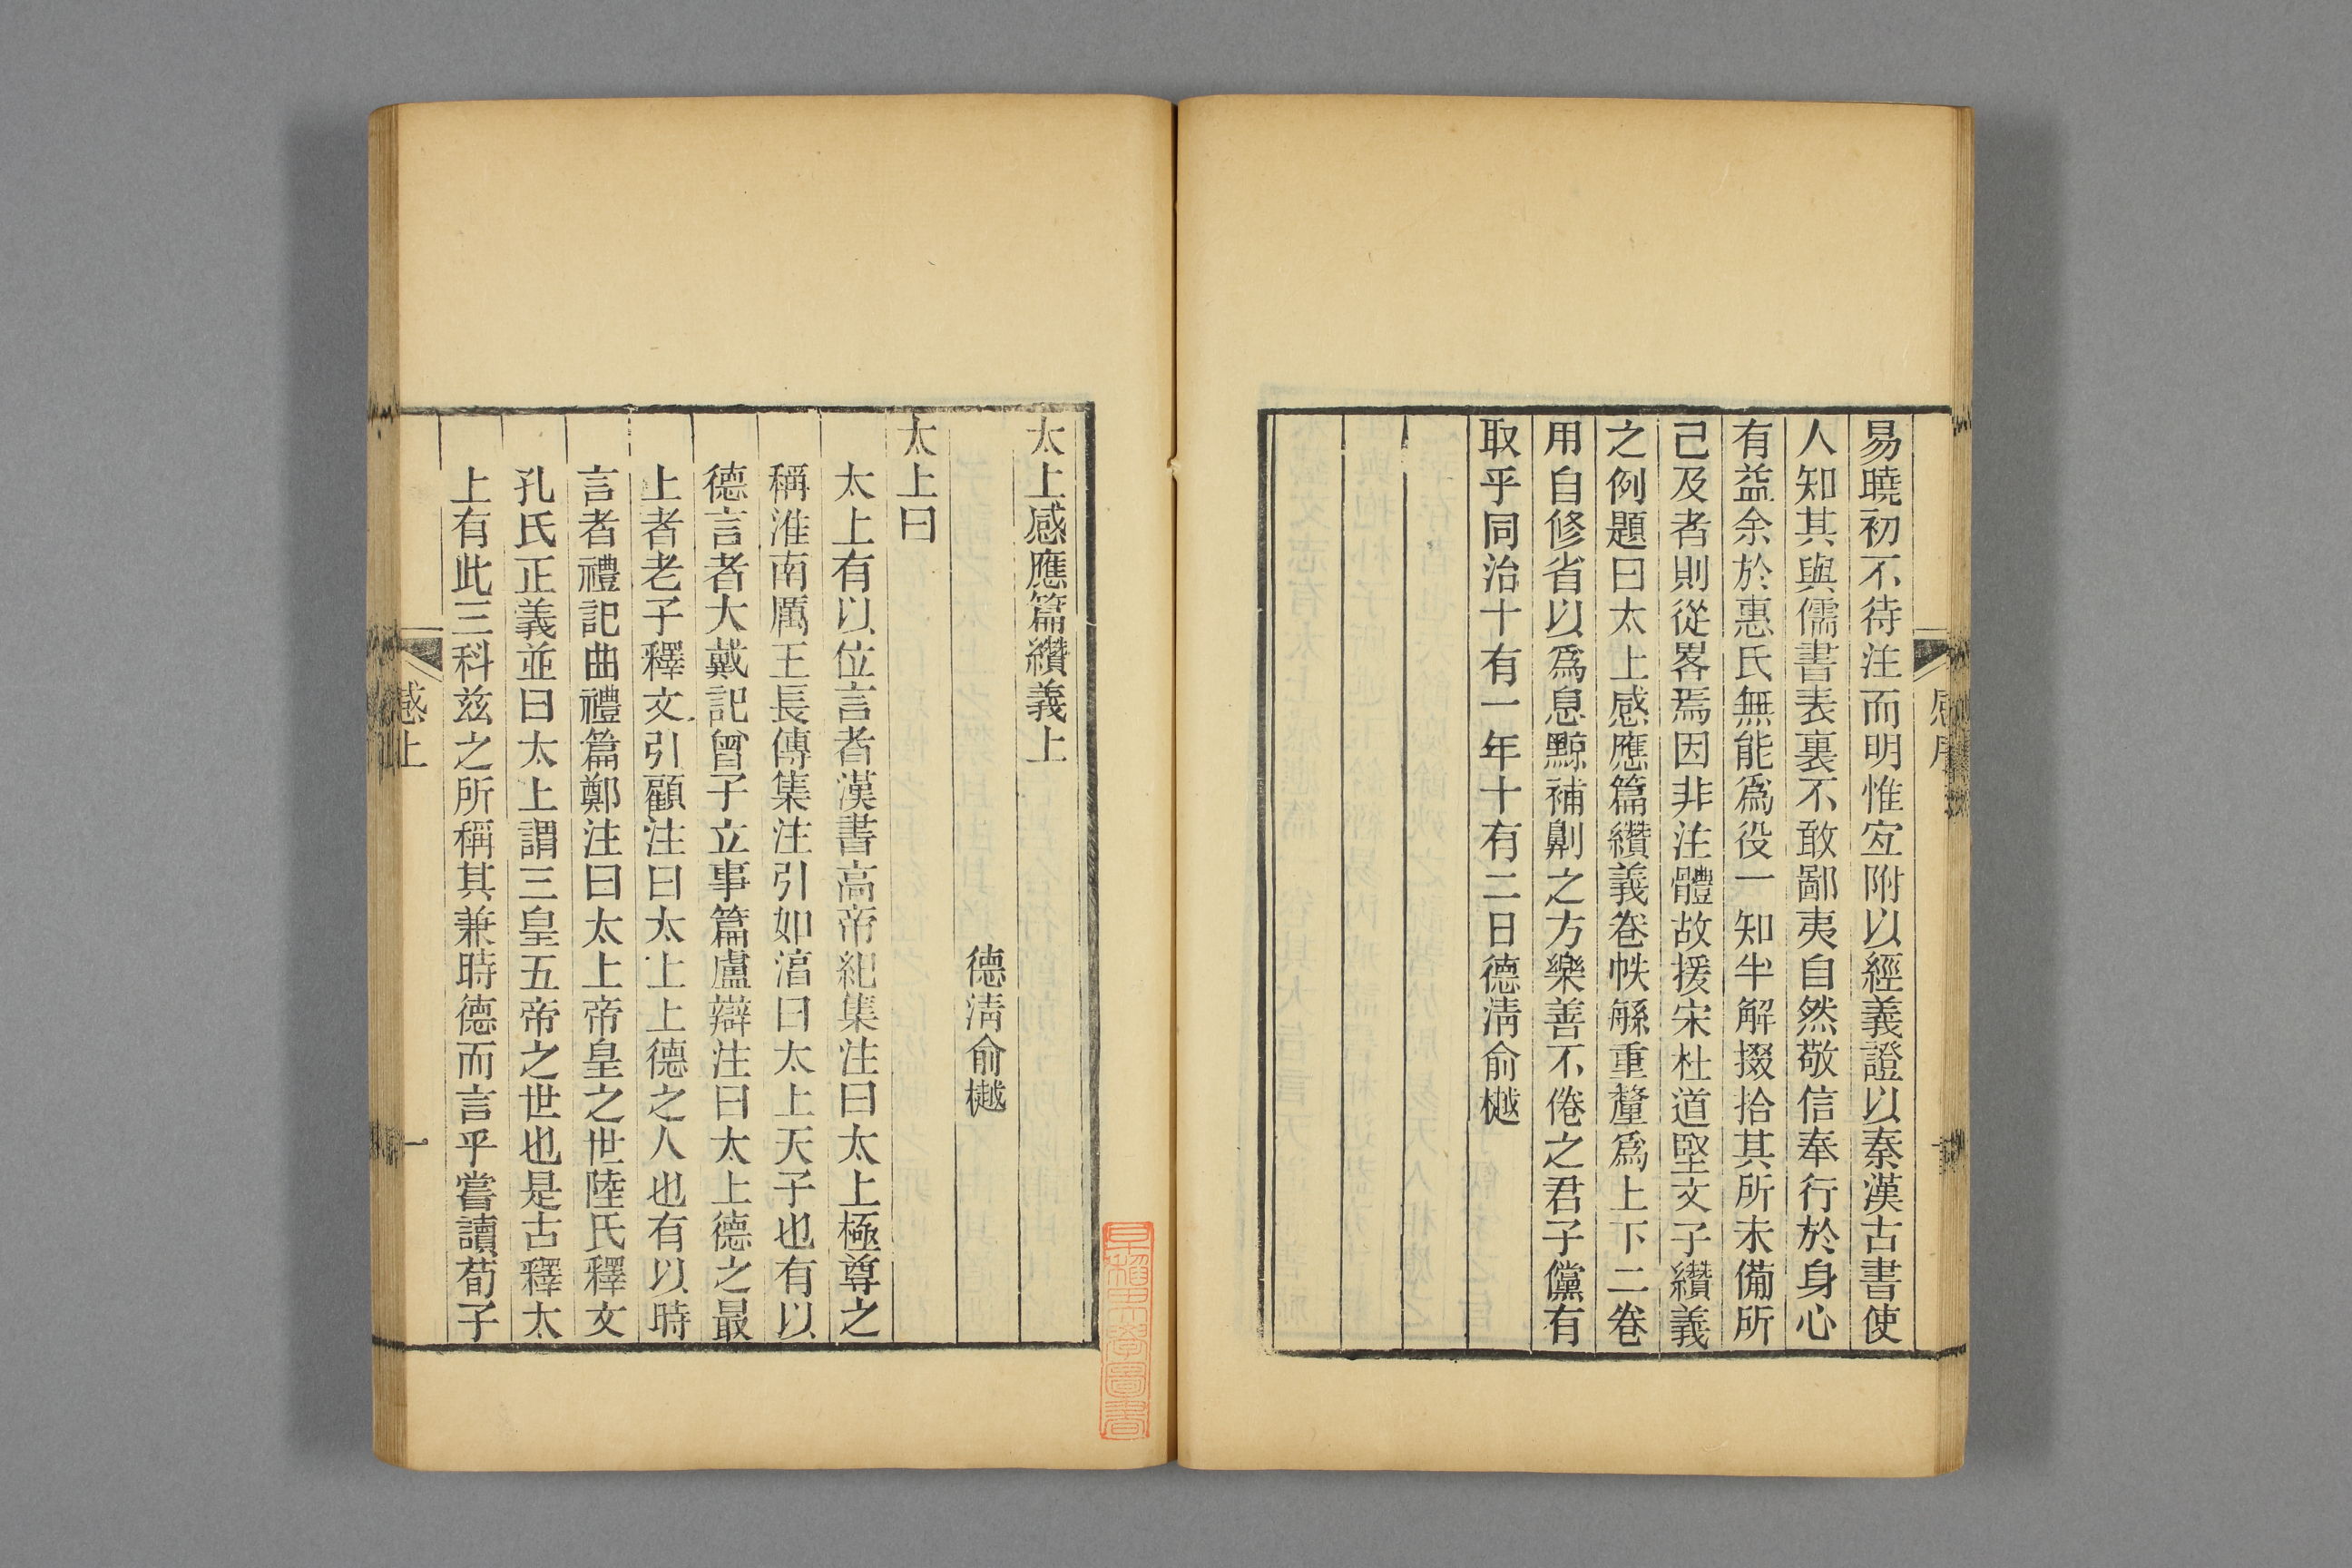 易曉初不待注而明惟宐附以經義證以秦漢古書使
人知其與儒書表裏不敢鄙夷自然敬信奉行於身心
有益余於惠氏無能爲役一知半解掇拾其所未備所
己及者則從畧焉因非注體故援宋杜道堅文子纘義
之例題曰太上感應篇纘義卷帙緐重釐爲上下二卷
用自修省以爲息黥補劓之方樂善不倦之君子儻有
取乎同治十有一年十有二日德淸俞樾
太上感應篇纘義上
德淸俞樾
太上曰
太上有以位言者漢書高帝紀集注曰太上極尊之
稱淮南厲王長傳集注引如湻曰太上天子也有以
德言者大戴記曾子立事篇盧辯注曰太上德之最
上者老子釋文引顧注曰太上上德之人也有以時
言者禮記曲禮篇鄭注曰太上帝皇之世陸氏釋文
孔氏正義並曰太上謂三皇五帝之世也是古釋太
上有此三科兹之所稱其兼時德而言乎嘗讀荀子
感上
一
早稻田大學圖書